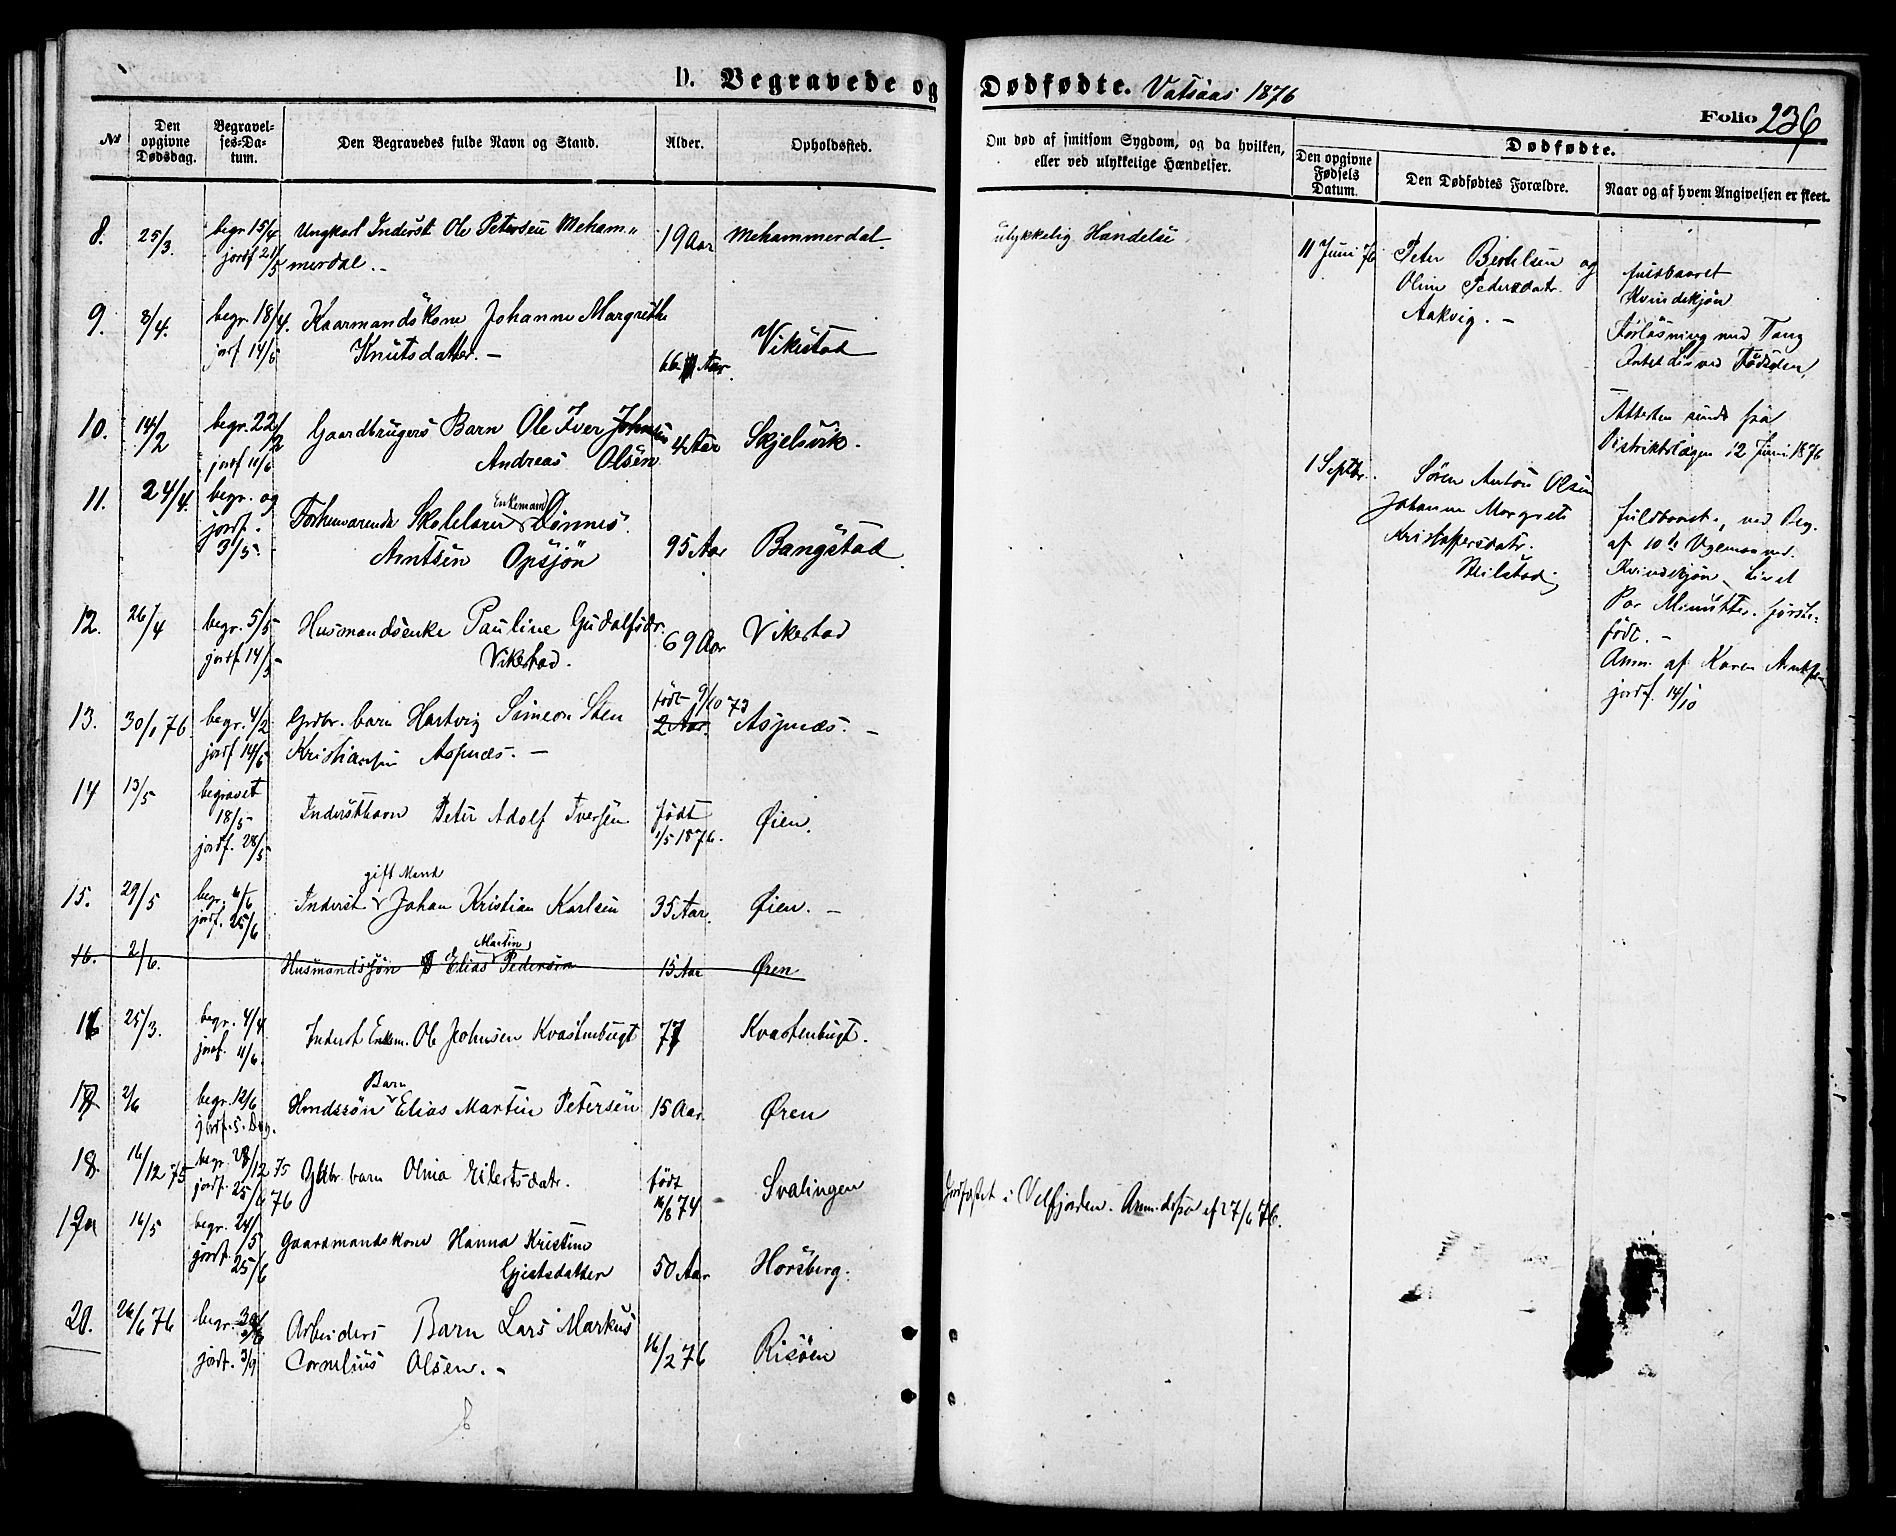 D. Begravede og Dødfødte. Vatsaas 1876
Folio 236
№
Den opgivne Dødsdag.
Begravelses-Datum.
Den Begravedes fulde Navn og Stand.
Alder.
Opholdssted.
Om død af smitsom Sygdom, og da hvilken, eller ved ulykkelige Hændelser.
Dødfødte.
Den opgivne Fødsels Datum.
Den Dødfødtes Forældre.
Naar og af hvem Angivelsen er skeet.
8. 25/3. begr. 15/4 Ungkarl Inderst Ole Petersen Meham„ 19 Aar Mehammerdal ulykkelig Handelse
jordf 21/5 merdal.
9. 8/4. begr. 18/4. Kaarmandskone Johanne Margrethe Vikestad
jorf 14/5 Knutsdatter. — 66 Aar.
10. 14/2 begr. 22/2 Gaardbrugers Barn Ole Iver Johnsen 4 Aar Skjelsvik.
jordf 11/6 Andreas Olsen
11. 24/4. begr. og Enkemand
jordf. Forhenværende Skolelærer Dönnes
3/5. Arntsen Opsjön 95 Aar Bangstad
12. 26/4 begr. 5/5 Husmandsenke Pauline Gudalfsdr. 69 Aar Vikestad
jordf 14/5 Vikestad.
13. 30/1 76 begr. 4/2 Grdbr. barn Hartvig Simeon Sten født 9/10 73 2 Aar. Aspnæs. —
jordf 14/5 Kristiansen Aspnæs. —
14 13/5 begravet
18/5 Inderstbarn Peter Adolf Iversen født Øien.
jordf. 28/5 1/5 1876.
gift Mand
15. 29/5 begr. 6/6 Inderst Johan Kristian Karlsen 35 Aar. Øien. —
jordf. 25/6
Martin
16. 2/6. Husmandssön Elias Pedersen 15 Aar Øren
16 25/3. begr. 4/4 Inderst Enkem. Ole Johnsen Kvastenbugt 77 Kvastenbugt.
jordf. 11/6.
Barn
17 2/6 begr. 12/6 Hmdssön Elias Martin Petersen 15 Aar Øren
jordf. s. Dag.
18. 16/12 75 begr. 28/12 75 Gdbr. barn Olina Eilertsdatr. født Svalingen
jordf. 25/6 76 16/8 74 Jordfæstet i Velfjorden. 27/6 76.
19 16/5 begr. 24/5 Gaardmandskone Hanna Kristine
jordf. 25/6 50 Aar Horsberg.
20. 26/6 76 begr. Arbeiders Barn Lars Markus
jordf. 3/9 Cornelius Olsen. — 16/2 76 Risöen
11 Juni 76 Peter Bertelsen og
Oline Pedersdatr.
Aakvig. —
fuldbaaret
Kvindekjön
Forløsning med Tang
Intet Liv ved Fødselen.
Attesten sendt fra
Distriktslægen 12 Juni 1876
1 Septbr. Søren Anton Olsen
Johanne Margrete
Kristoffersdatr.
fuldbaaret, ved Beg.
af 10de Ugemaaned.
Kvindekjön. Livet
Par Minutter. første-
født. —
Anm. af Karen
jordf. 14/10